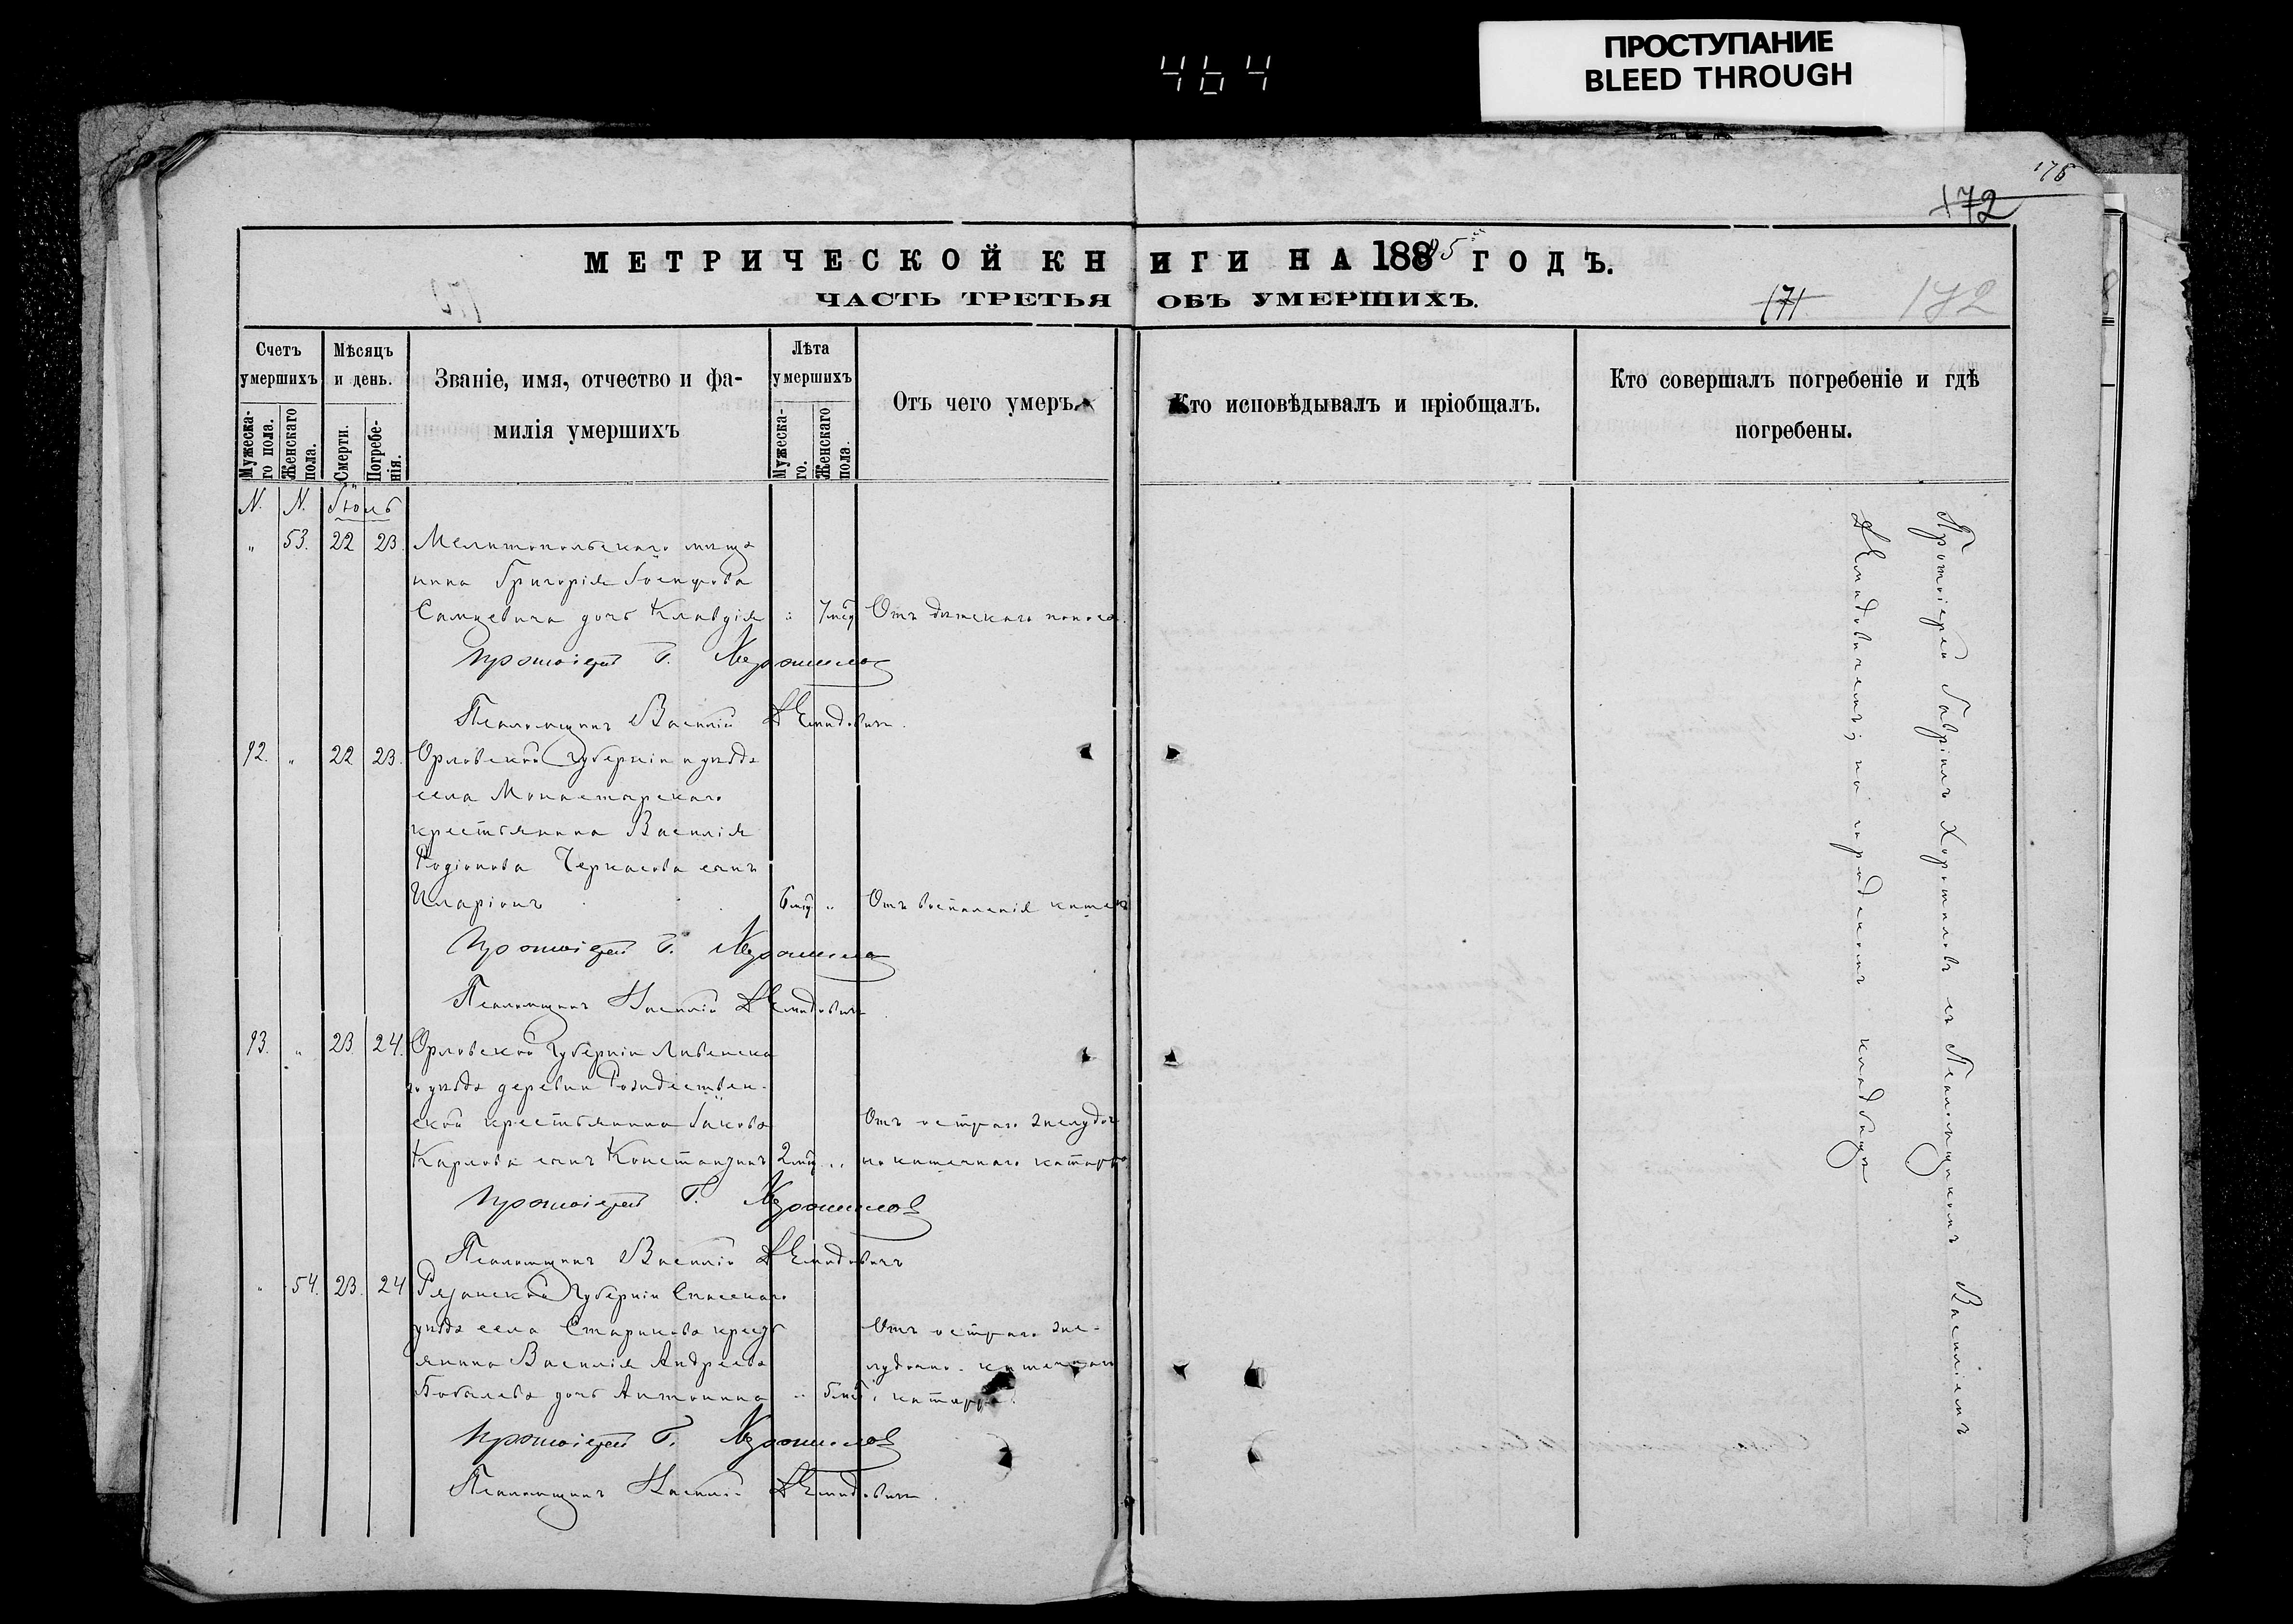 464
ПРОСТУПАНИЕ
BLEED THROUGH
175
172
МЕТРИЧЕСКОЙ КНИГИ НА 1885 ГОДЪ.
ЧАСТЬ ТРЕТЬЯ ОБЪ УМЕРШИХЪ.
171
172
Счетъ умершихъ
Мужеска-го пола.
Женскаго пола.
Мѣсяцъ и день.
Смерти.
Погребе-нія.
Званіе, имя, отчество и фа-
милія умершихъ
Лѣта умершихъ
Мужеска-го.
Женскаго пола.
Отъ чего умеръ.
Кто исповѣдывалъ и пріобщалъ.
Кто совершалъ погребеніе и гдѣ
погребены.
N. N. Іюль
" 53. 22 23. Мелитопольскаго мѣща
нина Григорія Іосифова
дочь Клавдія " 7 мѣс Отъ дѣтскаго поноса.
Протоіерей Г. Хорошилов
Псаломщикъ Василій Демидовичъ.
92. " 22 23. Орловской губерніи и уѣзда
села Монастырскаго
крестьянина Василія
Родіонова Черкасова сынъ
Иларіонъ 6 мѣс " Отъ воспаленія кишекъ
Протоіерей Г. Хорошилов
Псаломщикъ Василій Демидовичъ
93. " 23. 24. Орловской губерніи Ливенска
го уѣзда деревни Рождествен-
ской крестьянина Іакова Отъ остраго желудоч
Карлова сынъ Константинъ 2 мѣс " но кишечнаго катарра
Протоіерей Г. Хорошилов
Псаломщикъ Василій Демидовичъ
" 54. 23. 24 Рязанской губерніи Спасскаго
уѣзда села Старикова крест Отъ остраго же-
янина Василія Андреева лудочно-кишечнаго
Бобылева дочь Антонина " 5 мѣс катарра.
Протоіерей Г. Хорошилов
Псаломщикъ Василій Демидовичъ.
Протоіерей Гавріилъ Хорошиловъ съ Псаломщикомъ Василіемъ
Демидовичемъ; на городскомъ кладбищѣ